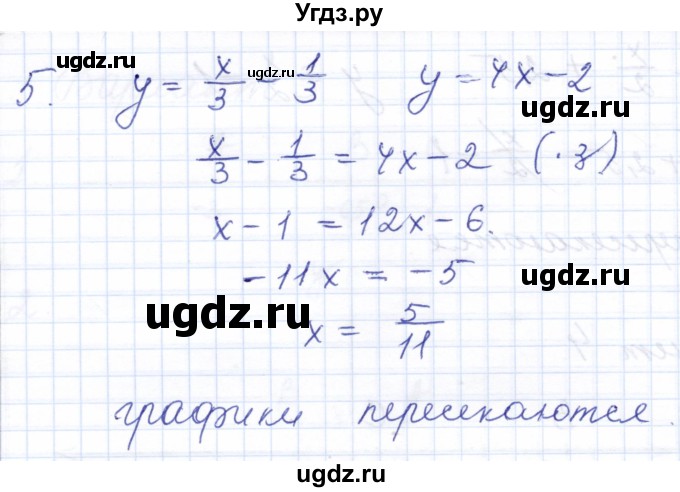 Угдз.ру
ugdz.ru ugdz.ru ugdz.ru
5. y = x/3 - 1/3 y = 4x - 2
ugdz.ru
x/3 - 1/3 = 4x - 2 (·3)
x - 1 = 12x - 6.
-11x = -5
ugdz.ru ugdz.ru
x = 5/11
графики пересекаются.
ugdz.ru